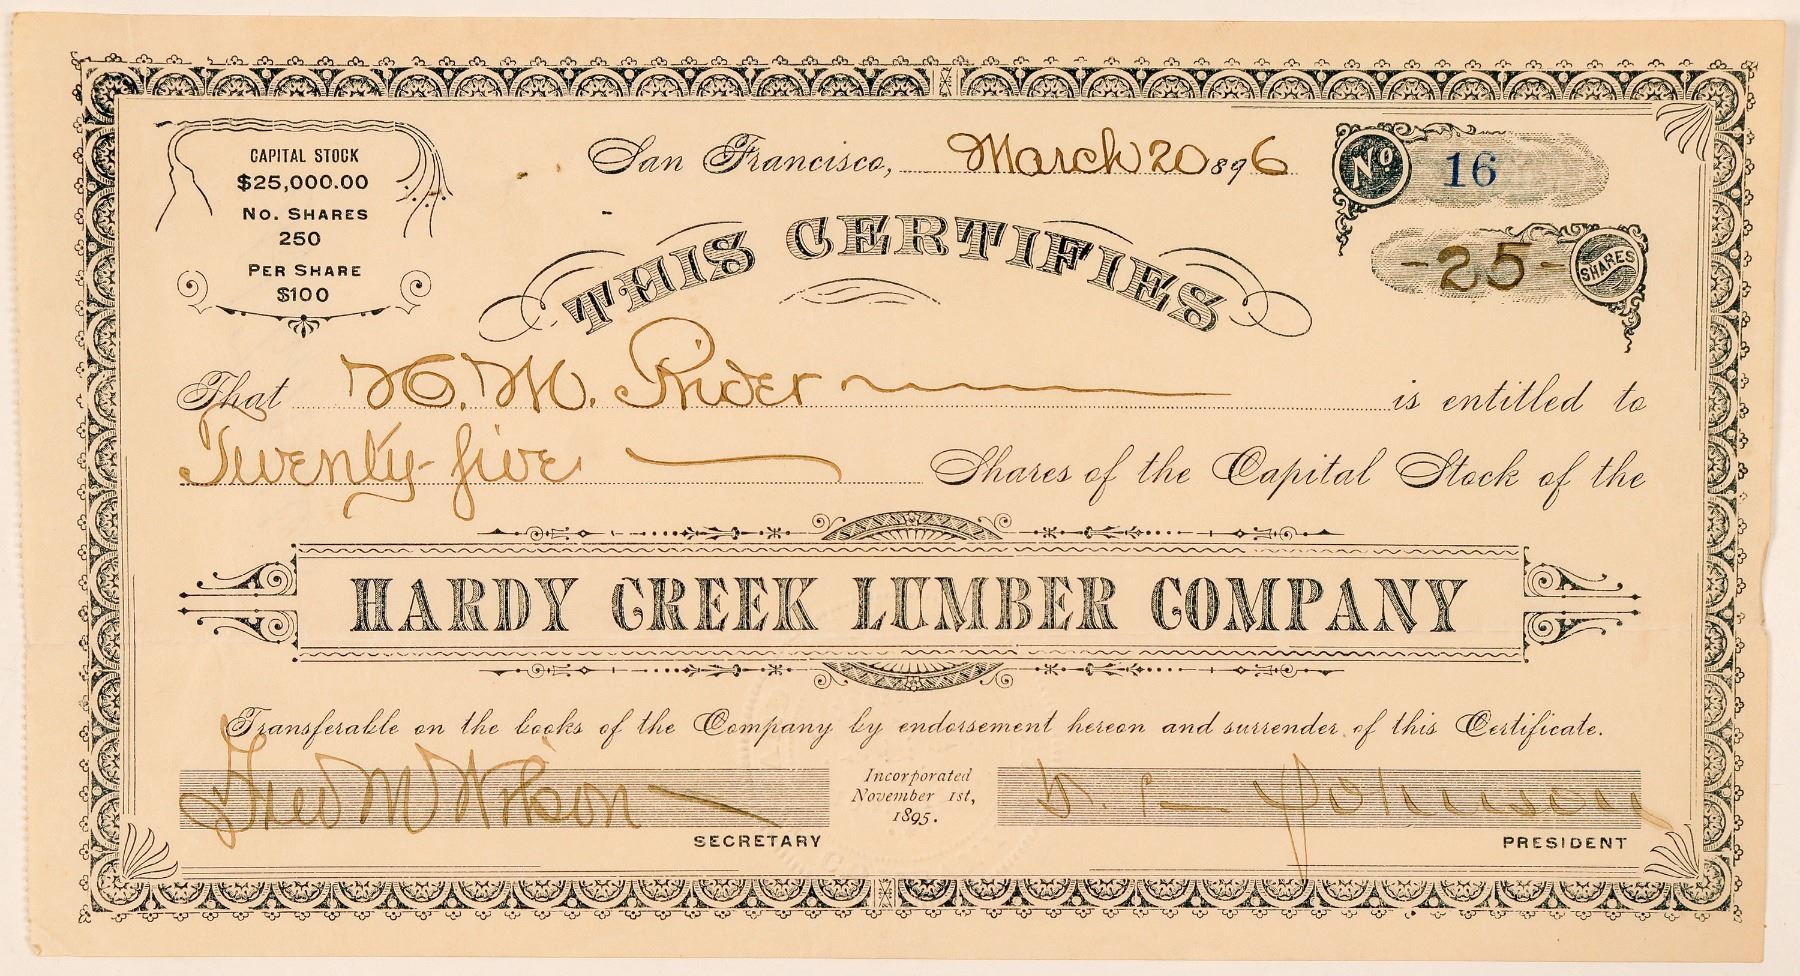 CAPITAL STOCK
$25,000.00
No. SHARES
250
PER SHARE
$100
San Francisco, March 20 1896
No 16
-25- SHARES
THIS CERTIFIES
That is entitled to
Twenty-five Shares of the Capital Stock of the
HARDY CREEK LUMBER COMPANY
Transferable on the books of the Company by endorsement hereon and surrender of this Certificate.
Fred M Wilson
SECRETARY
Incorporated
November 1st,
1895.
Johnson
PRESIDENT